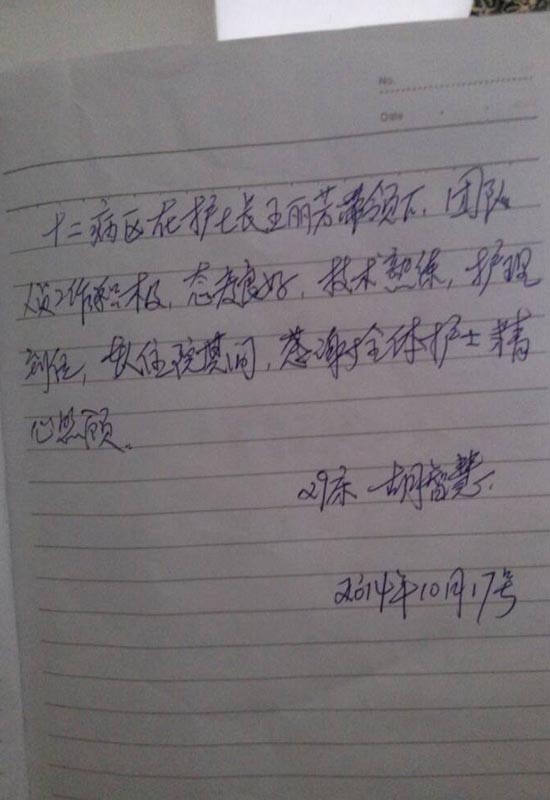 No.
Date
十二病区在护士长王丽芳带领下，团队
人员工作积极，态度良好，技术熟练，护理
到位，我住院其间，感谢全体护士精
心照顾。
29床 胡智慧
2014年10月17号